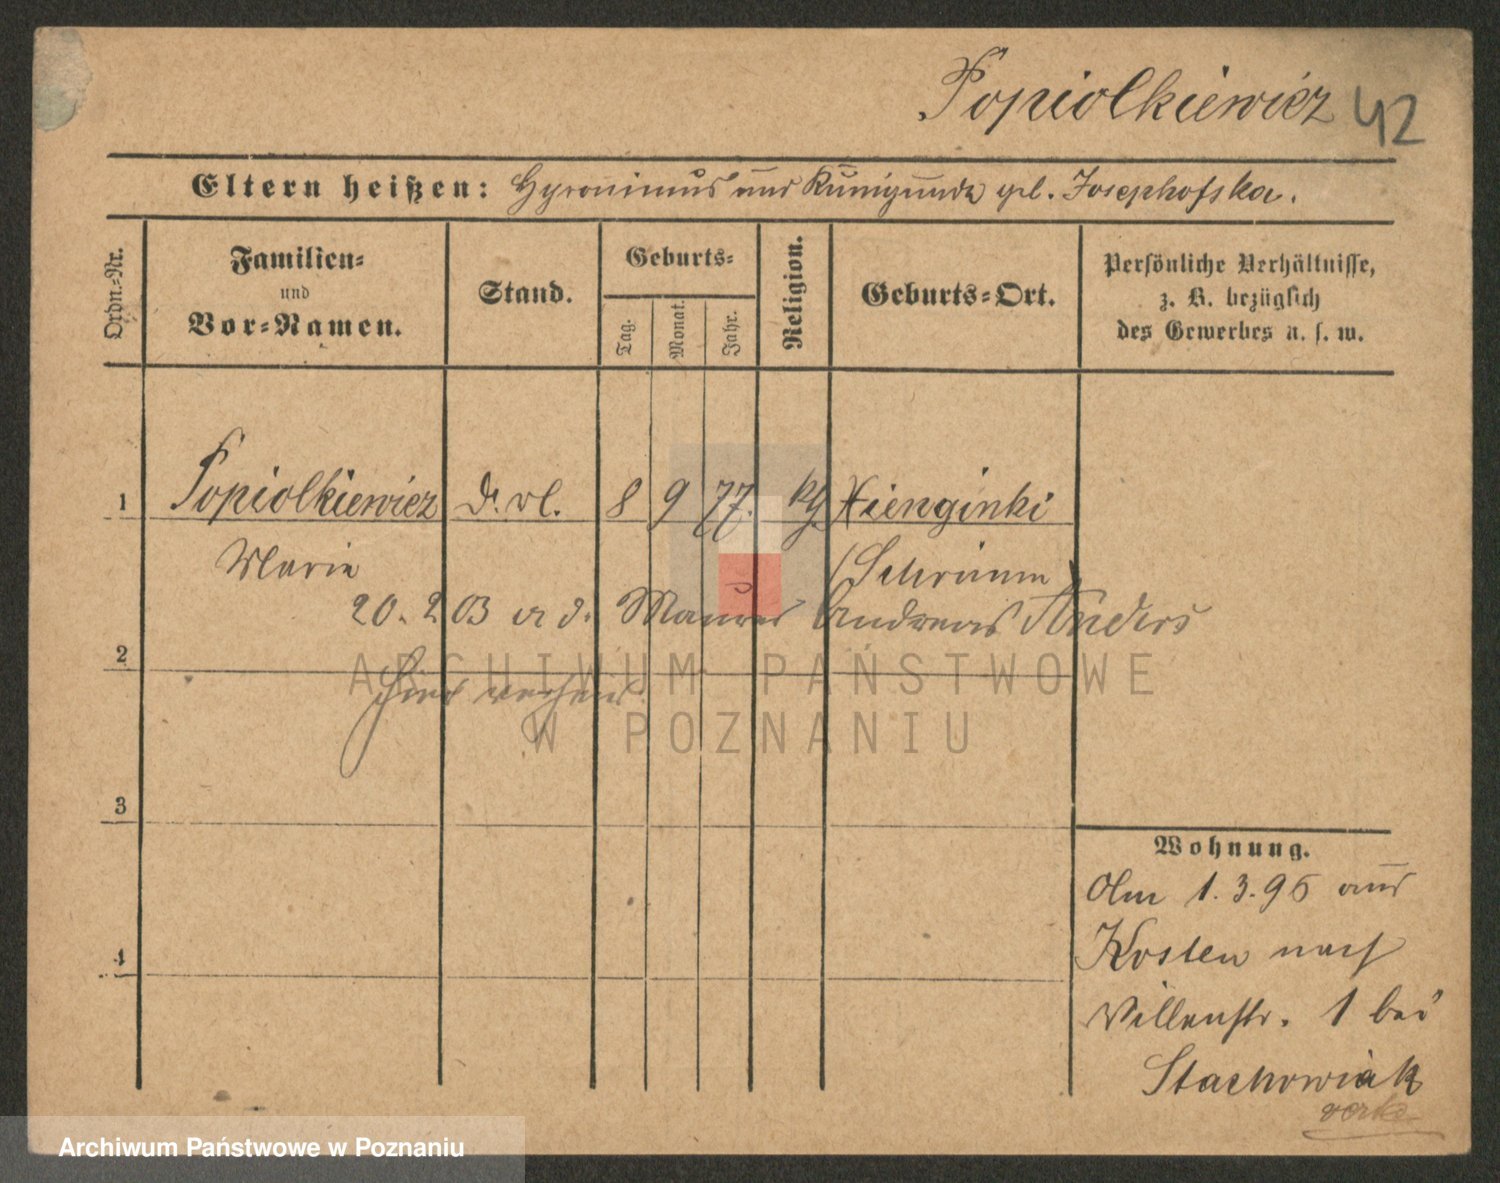 Popiolkiewicz 42
Eltern heißen: Hyronimus und Kunigunde geb. Josephofska.
Ordn.-Nr.
Familien-
und
Vor-Namen.
Stand.
Geburts-
Tag.
Monat.
Jahr.
Religion.
Geburts-Ort.
Persönliche Verhältnisse,
z. B. bezüglich
des Gewerbes u. s. w.
1 Popiolkiewicz 8 9 77. kth Xienginki
Marie (Schrimm)
20. 2 03 Maurer Andreas Anders
2
hier verheir.
3
4
Wohnung.
Am 1.3.96 aus
Kosten nach
Villenstr. 1 bei
Stachowiak
ARCHIWUM PAŃSTWOWE
W POZNANIU
Archiwum Państwowe w Poznaniu